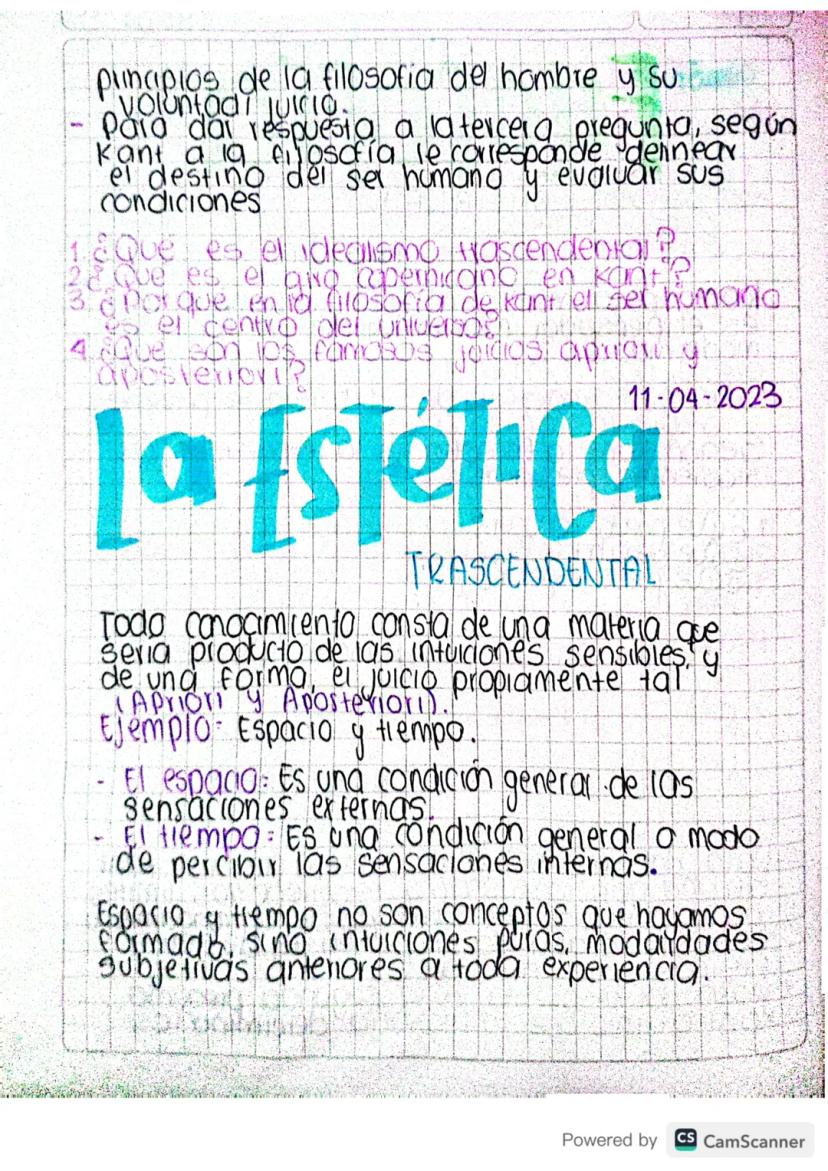 principios de la filosofía del hombre y su
voluntad/ juicio.
- Para dar respuesta a la tercera pregunta, según
Kant a la filosofía le corresponde delinear
el destino del ser humano y evaluar sus
condiciones
1 ¿Qué es el idealismo trascendental?
2 ¿Que es el giro copernicano en Kant?
3 ¿Por que en la filosofía de Kant el ser humano
es el centro del universo?
4 ¿Que son los famosos juicios apriori y
aposteriori?
11-04-2023
La Estética
TRASCENDENTAL
Todo conocimiento consta de una materia que
seria producto de las intuiciones sensibles, y
de una forma, el juicio propiamente tal
(Apriori y Aposteriori).
Ejemplo: Espacio y tiempo.
- El espacio: Es una condición general de las
sensaciones externas.
- El tiempo: Es una condición general o modo
de percibir las sensaciones internas.
Espacio y tiempo no son conceptos que hayamos
formado, sino intuiciones puras, modalidades
subjetivas anteriores a toda experiencia.
Powered by CS CamScanner